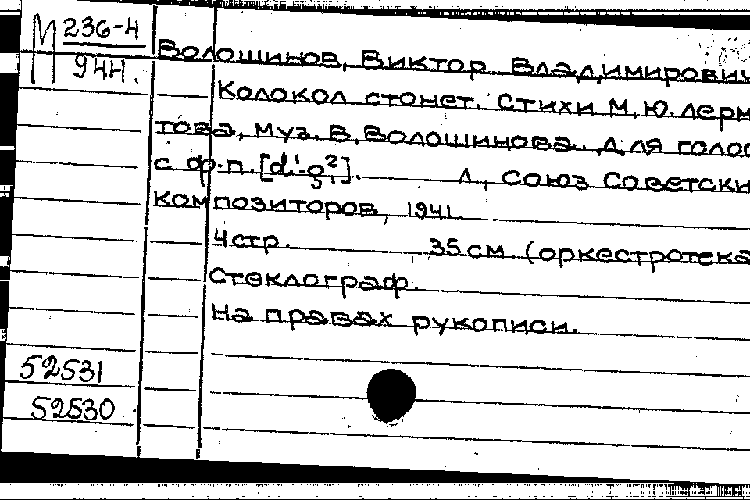 М 236-4
944.
Волошинов, Виктор Владимирович
Колокол стонет. Стихи М.Ю. Лерм
това, муз. В. Волошинова. Для голос
с ф-п. [d¹-g²]. Л., Союз Советски
композиторов, 1941.
4 стр. 35 см. (оркестротека
Стеклограф.
На правах рукописи.
52531
52530